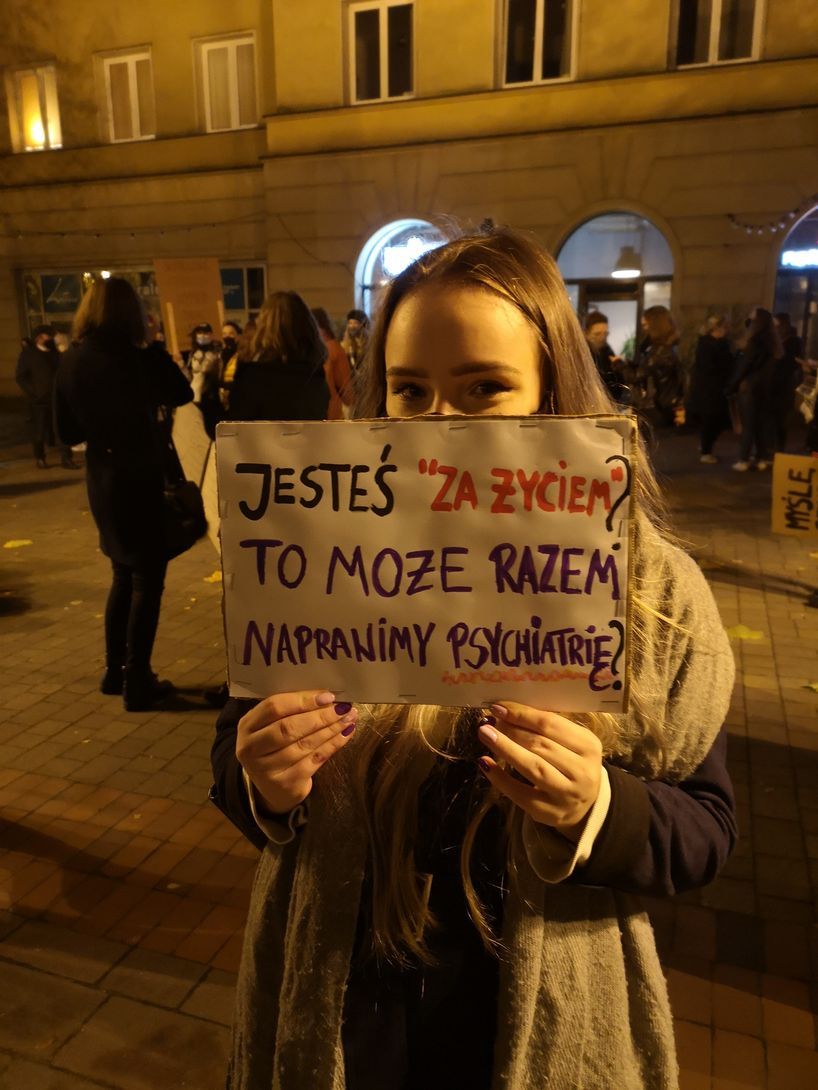 JESTEŚ "ZA ŻYCIEM"?
TO MOŻE RAZEM
NAPRAWIMY PSYCHIATRIĘ?
MYŚLĘ